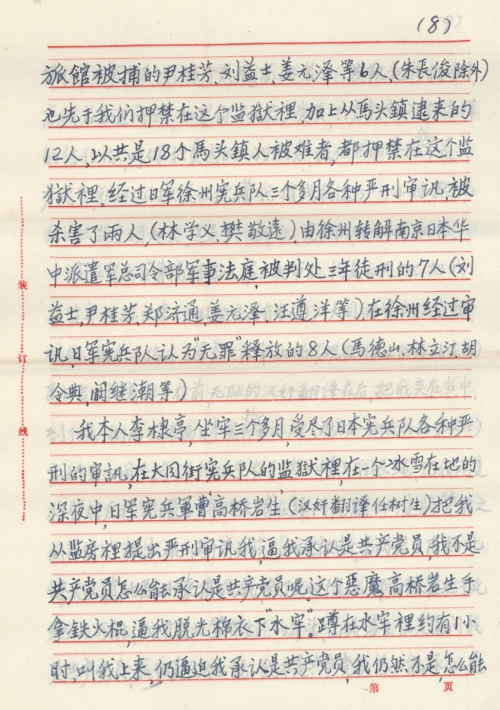 (8)
旅館被捕的尹桂芳、刘益士、姜元泽等6人,(朱長俊除外)
也先于我们押禁在这个监獄裡,加上从馬头鎮逮来的
12人,以共是18个馬头鎮人被难者,都押禁在这个监
獄裡。经过日軍徐州宪兵队三个多月各种严刑审讯,被
杀害了两人,(林学义、樊敬遠)、由徐州转解南京日本华
中派遣军总司令部军事法庭,被判处三年徒刑的7人(刘
益士,尹桂芳、郑济通、姜元泽、汪遵洋等)在徐州经过审
讯,日军宪兵队认为“无罪”釋放的8人(馬德山、林立汀、胡
令典,阚继潮等)
我本人李棣亭,坐牢三个多月,受尽了日本宪兵队各种严
刑的审訊,在大同街宪兵队的监獄裡,在一个冰雪在地的
深夜中,日军宪兵軍曹高桥岩生(汉奸翻译任树生)把我
从监房裡提出严刑审讯我,逼我承认是共产党员,我不是
共产党员怎么能承认是共产党员呢,这个恶魔高桥岩生手
拿铁火棍,逼我脱光棉衣下“水牢”。蹲在水牢裡约有1小
时,叫我上来,仍逼迫我承认是共产党员,我仍然不是,怎么能
装
订
线
第 页